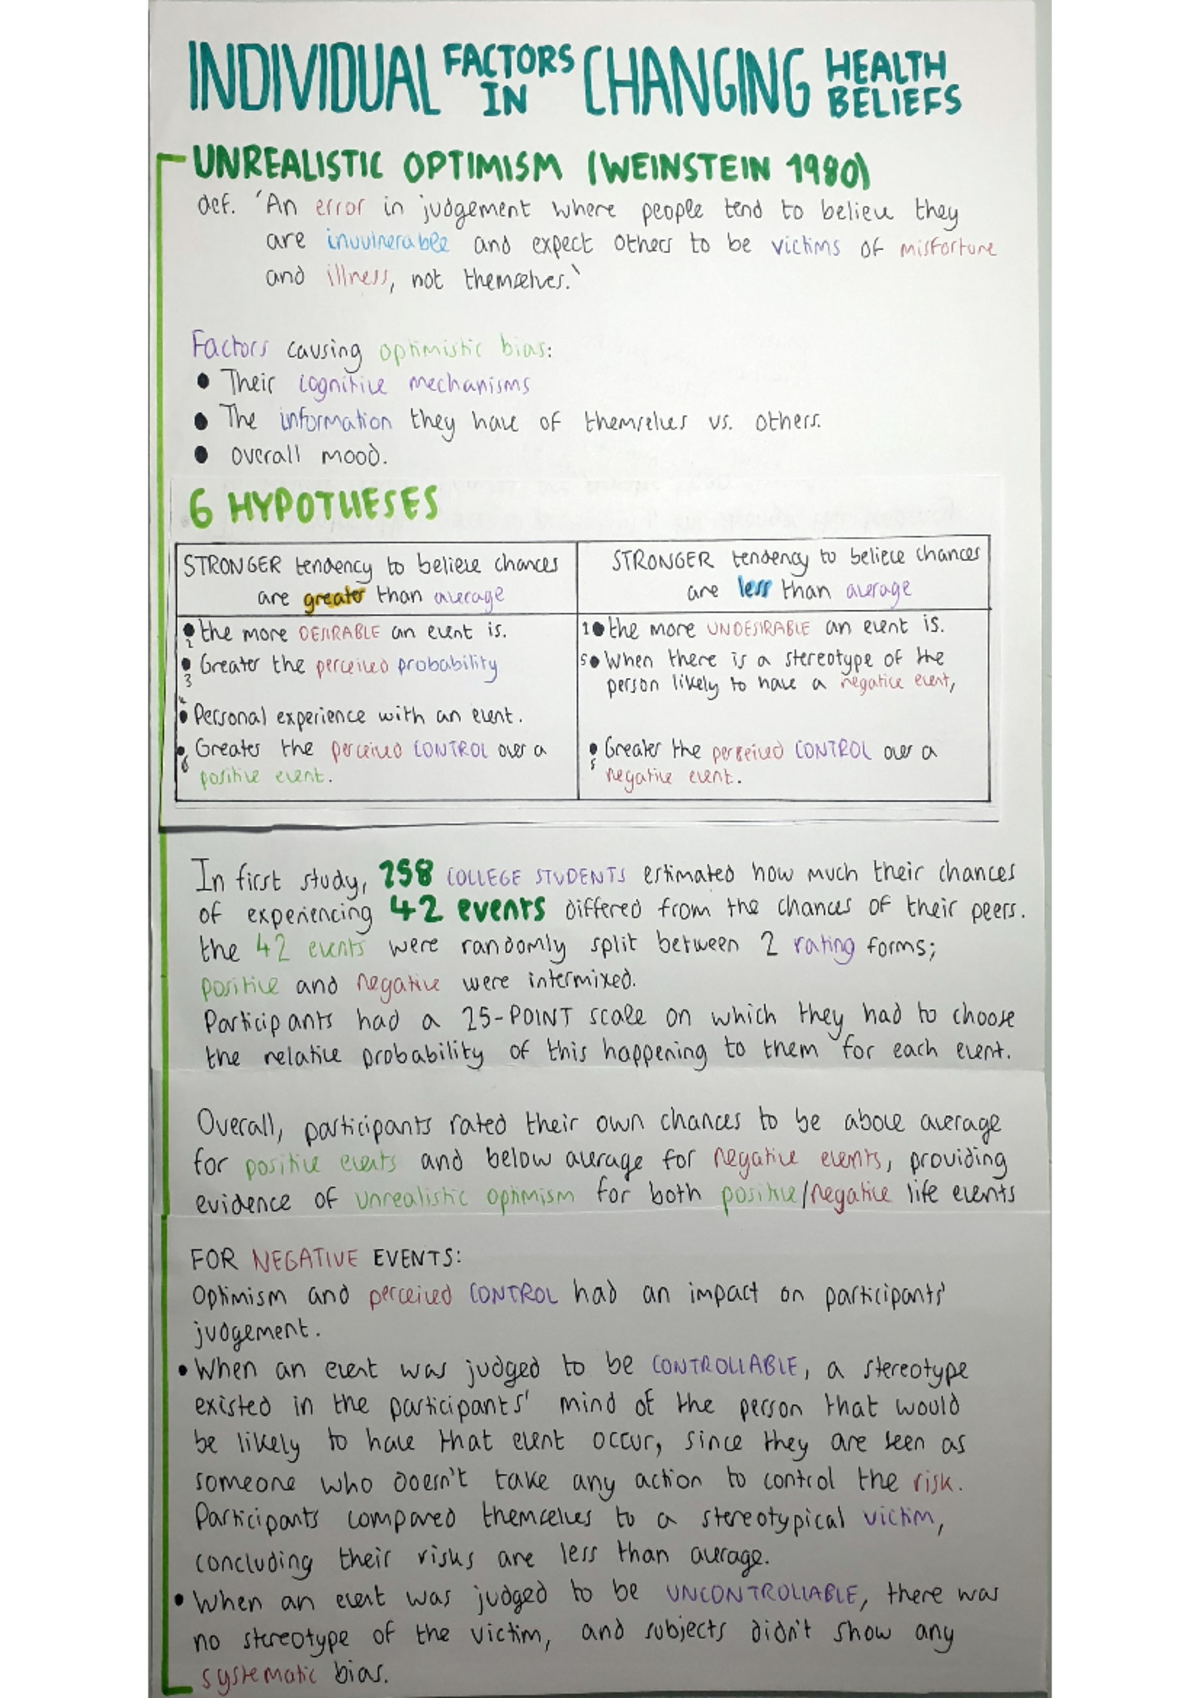 INDIVIDUAL FACTORS IN CHANGING HEALTH BELIEFS
UNREALISTIC OPTIMISM (WEINSTEIN 1980)
def. 'An error in judgement where people tend to believe they
are invulnerable and expect others to be victims of misfortune
and illness, not themselves.'
Factors causing optimistic bias:
• Their cognitive mechanisms
• The information they have of themselves vs. others.
• Overall mood.
6 HYPOTHESES
STRONGER tendency to believe chances
are greater than average
2 • the more DESIRABLE an event is.
3 • Greater the perceived probability
4 • Personal experience with an event.
6 • Greater the perceived CONTROL over a
positive event.
STRONGER tendency to believe chances
are less than average
1 • the more UNDESIRABLE an event is.
5 • When there is a stereotype of the
person likely to have a negative event,
5 • Greater the perceived CONTROL over a
negative event.
In first study, 258 COLLEGE STUDENTS estimated how much their chances
of experiencing 42 events differed from the chances of their peers.
the 42 events were randomly split between 2 rating forms;
positive and negative were intermixed.
Participants had a 25-POINT scale on which they had to choose
the relative probability of this happening to them for each event.
Overall, participants rated their own chances to be above average
for positive events and below average for negative events, providing
evidence of unrealistic optimism for both positive/negative life events
FOR NEGATIVE EVENTS:
Optimism and perceived CONTROL had an impact on participants'
judgement.
• When an event was judged to be CONTROLLABLE, a stereotype
existed in the participants' mind of the person that would
be likely to have that event occur, since they are seen as
someone who doesn't take any action to control the risk.
Participants compared themselves to a stereotypical victim,
concluding their risks are less than average.
• When an event was judged to be UNCONTROLLABLE, there was
no stereotype of the victim, and subjects didn't show any
systematic bias.